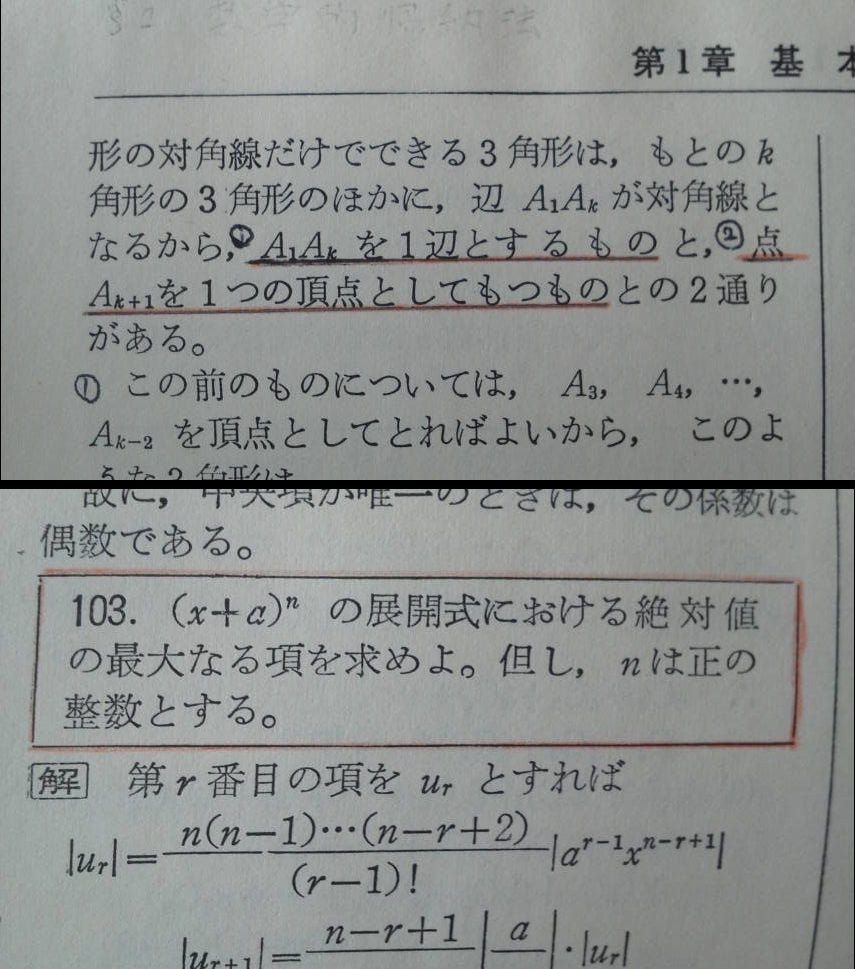 第1章 基本
形の対角線だけでできる3角形は, もとのk
角形の3角形のほかに, 辺 A₁Aₖ が対角線と
なるから,① A₁Aₖ を1辺とするものと,② 点
Aₖ₊₁を1つの頂点としてもつものとの2通り
がある。
① この前のものについては, A₃, A₄, …,
Aₖ₋₂ を頂点としてとればよいから, このよ
うな3角形は
故に, 中央項が唯一のときは, その係数は
偶数である。
103. (x+a)ⁿ の展開式における絶対値
の最大なる項を求めよ。但し, nは正の
整数とする。
解 第r番目の項を uᵣ とすれば
|uᵣ|=n(n-1)…(n-r+2)/(r-1)! |aʳ⁻¹xⁿ⁻ʳ⁺¹|
|uᵣ₊₁|=n-r+1 |a |·|uᵣ|